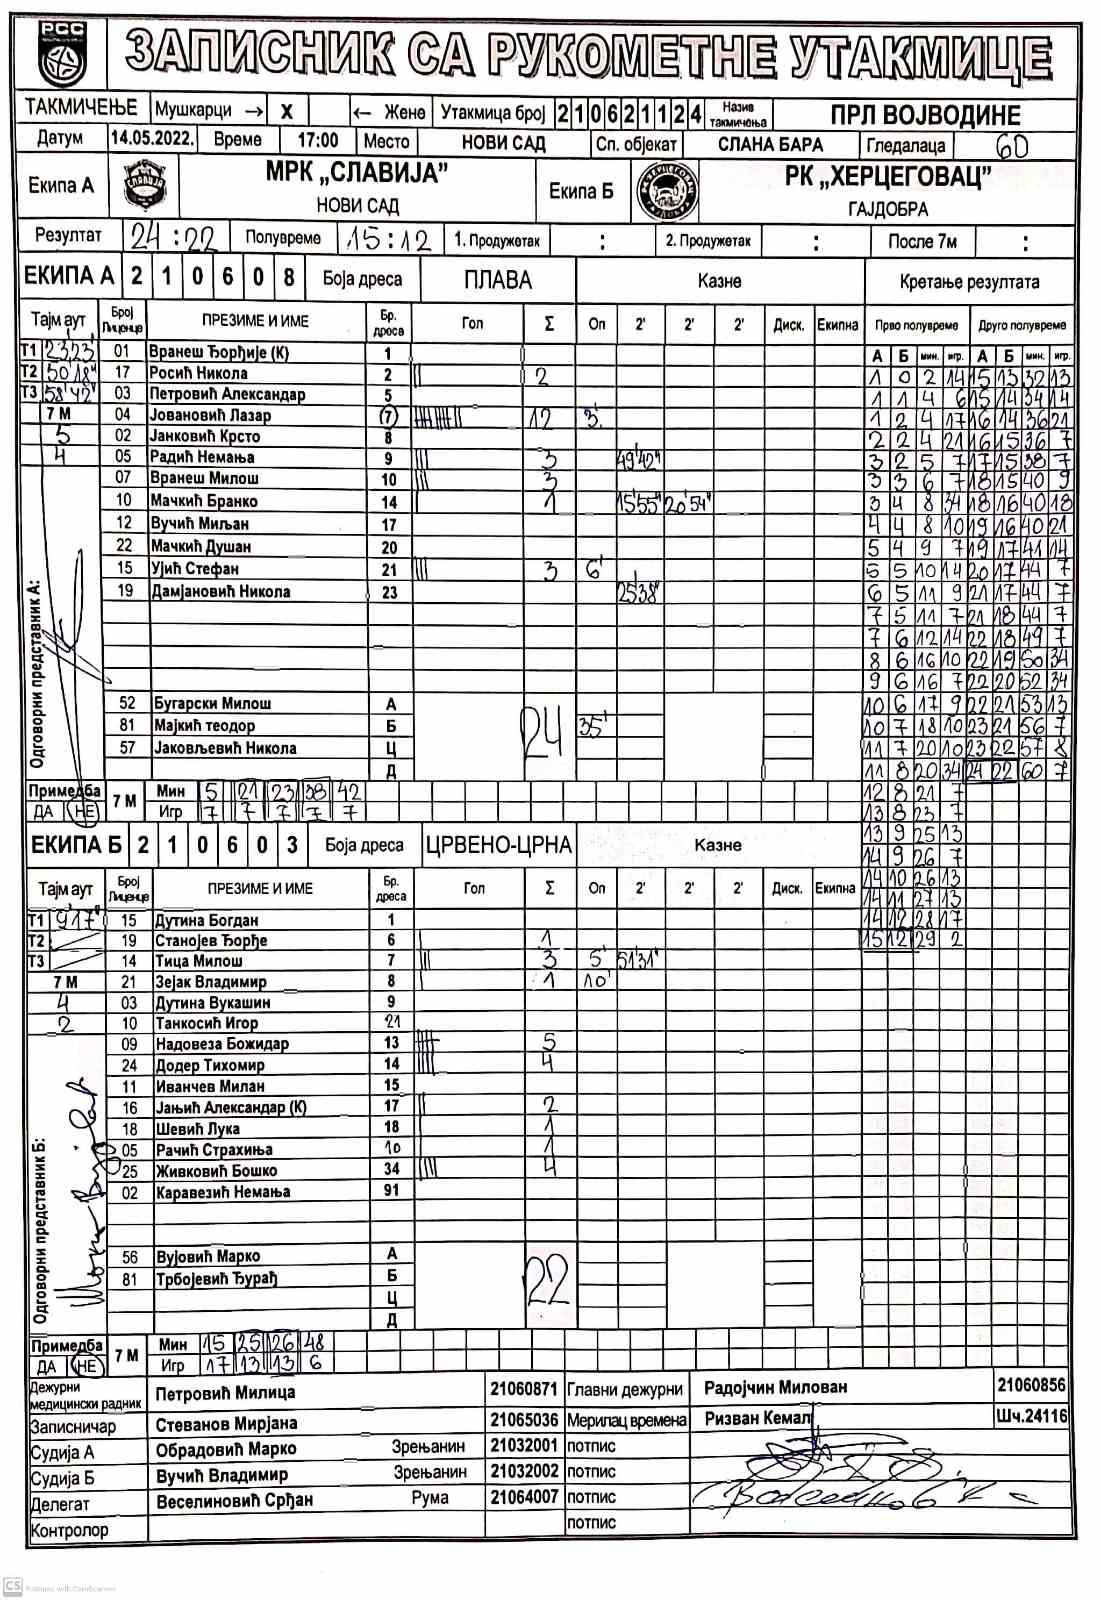 РСС
ЗАПИСНИК СА РУКОМЕТНЕ УТАКМИЦЕ
ТАКМИЧЕЊЕ Мушкарци → X ← Жене Утакмица број 210621124 Назив такмичења ПРЛ ВОЈВОДИНЕ
Датум 14.05.2022. Време 17:00 Место НОВИ САД Сп. објекат СЛАНА БАРА Гледалаца 60
Екипа А МРК „СЛАВИЈА” НОВИ САД Екипа Б РК „ХЕРЦЕГОВАЦ” ГАЈДОБРА
Резултат 24:22 Полувреме 15:12 1. Продужетак : 2. Продужетак : После 7м :
ЕКИПА А 2 1 0 6 0 8 Боја дреса ПЛАВА Казне Кретање резултата
Тајм аут Број Лиценце ПРЕЗИМЕ И ИМЕ Бр. дреса Гол Σ Оп 2' 2' 2' Диск. Екипна Прво полувреме Друго полувреме
Т1 23,23" 01 Вранеш Ђорђије (К) 1 А Б мин. игр. А Б мин. игр.
Т2 50'18" 17 Росић Никола 2 || 2 1 0 2 14 15 13 32 13
Т3 58'42" 03 Петровић Александар 5 1 1 4 6 15 14 34 14
7 М 04 Јовановић Лазар (7) 12 3' 1 2 4 17 16 14 36 21
5 02 Јанковић Крсто 8 2 2 4 21 16 15 36 7
4 05 Радић Немања 9 ||| 3 49'42" 3 2 5 7 17 15 38 7
07 Вранеш Милош 10 ||| 3 3 3 6 7 18 15 40 9
10 Мачкић Бранко 14 | 1 15'55" 20'54" 3 4 8 34 18 16 40 18
12 Вучић Миљан 17 4 4 8 10 19 16 40 21
22 Мачкић Душан 20 5 4 9 7 19 17 41 14
15 Ујић Стефан 21 ||| 3 6' 5 5 10 14 20 17 44 7
19 Дамјановић Никола 23 25'38" 6 5 11 9 21 17 44 7
7 5 11 7 21 18 44 7
7 6 12 14 22 18 49 7
8 6 16 10 22 19 50 34
9 6 16 7 22 20 52 34
Одговорни представник А:
52 Бугарски Милош А 24 10 6 17 9 22 21 53 13
81 Мајкић теодор Б 35' 10 7 18 10 23 21 56 7
57 Јаковљевић Никола Ц 11 7 20 10 23 22 57 8
Д 11 8 20 34 24 22 60 7
Примедба 7 М Мин 5 21 23 38 42 12 8 21 7
ДА НЕ Игр 7 7 7 7 7 13 8 23 7
13 9 25 13
ЕКИПА Б 2 1 0 6 0 3 Боја дреса ЦРВЕНО-ЦРНА Казне 14 9 26 7
14 10 26 13
Тајм аут Број Лиценце ПРЕЗИМЕ И ИМЕ Бр. дреса Гол Σ Оп 2' 2' 2' Диск. Екипна 14 11 27 13
Т1 9'17" 15 Дутина Богдан 1 14 12 28 17
Т2 19 Станојев Ђорђе 6 | 1 15 12 29 2
Т3 14 Тица Милош 7 ||| 3 5' 51'31"
7 М 21 Зејак Владимир 8 | 1 10'
4 03 Дутина Вукашин 9
2 10 Танкосић Игор 21
09 Надовеза Божидар 13 5
24 Додер Тихомир 14 |||| 4
11 Иванчев Милан 15
16 Јањић Александар (К) 17 || 2
18 Шевић Лука 18 | 1
05 Рачић Страхиња 10 | 1
25 Живковић Бошко 34 |||| 4
02 Каравезић Немања 91
Одговорни представник Б:
56 Вујовић Марко А 22
81 Трбојевић Ђурађ Б
Ц
Д
Примедба 7 М Мин 15 25 26 48
ДА НЕ Игр 17 13 13 6
Дежурни медицински радник Петровић Милица 21060871 Главни дежурни Радојчин Милован 21060856
Записничар Стеванов Мирјана 21065036 Мерилац времена Ризван Кемал Шч.24116
Судија А Обрадовић Марко Зрењанин 21032001 потпис
Судија Б Вучић Владимир Зрењанин 21032002 потпис
Делегат Веселиновић Срђан Рума 21064007 потпис
Контролор потпис
CS Scanned with CamScanner